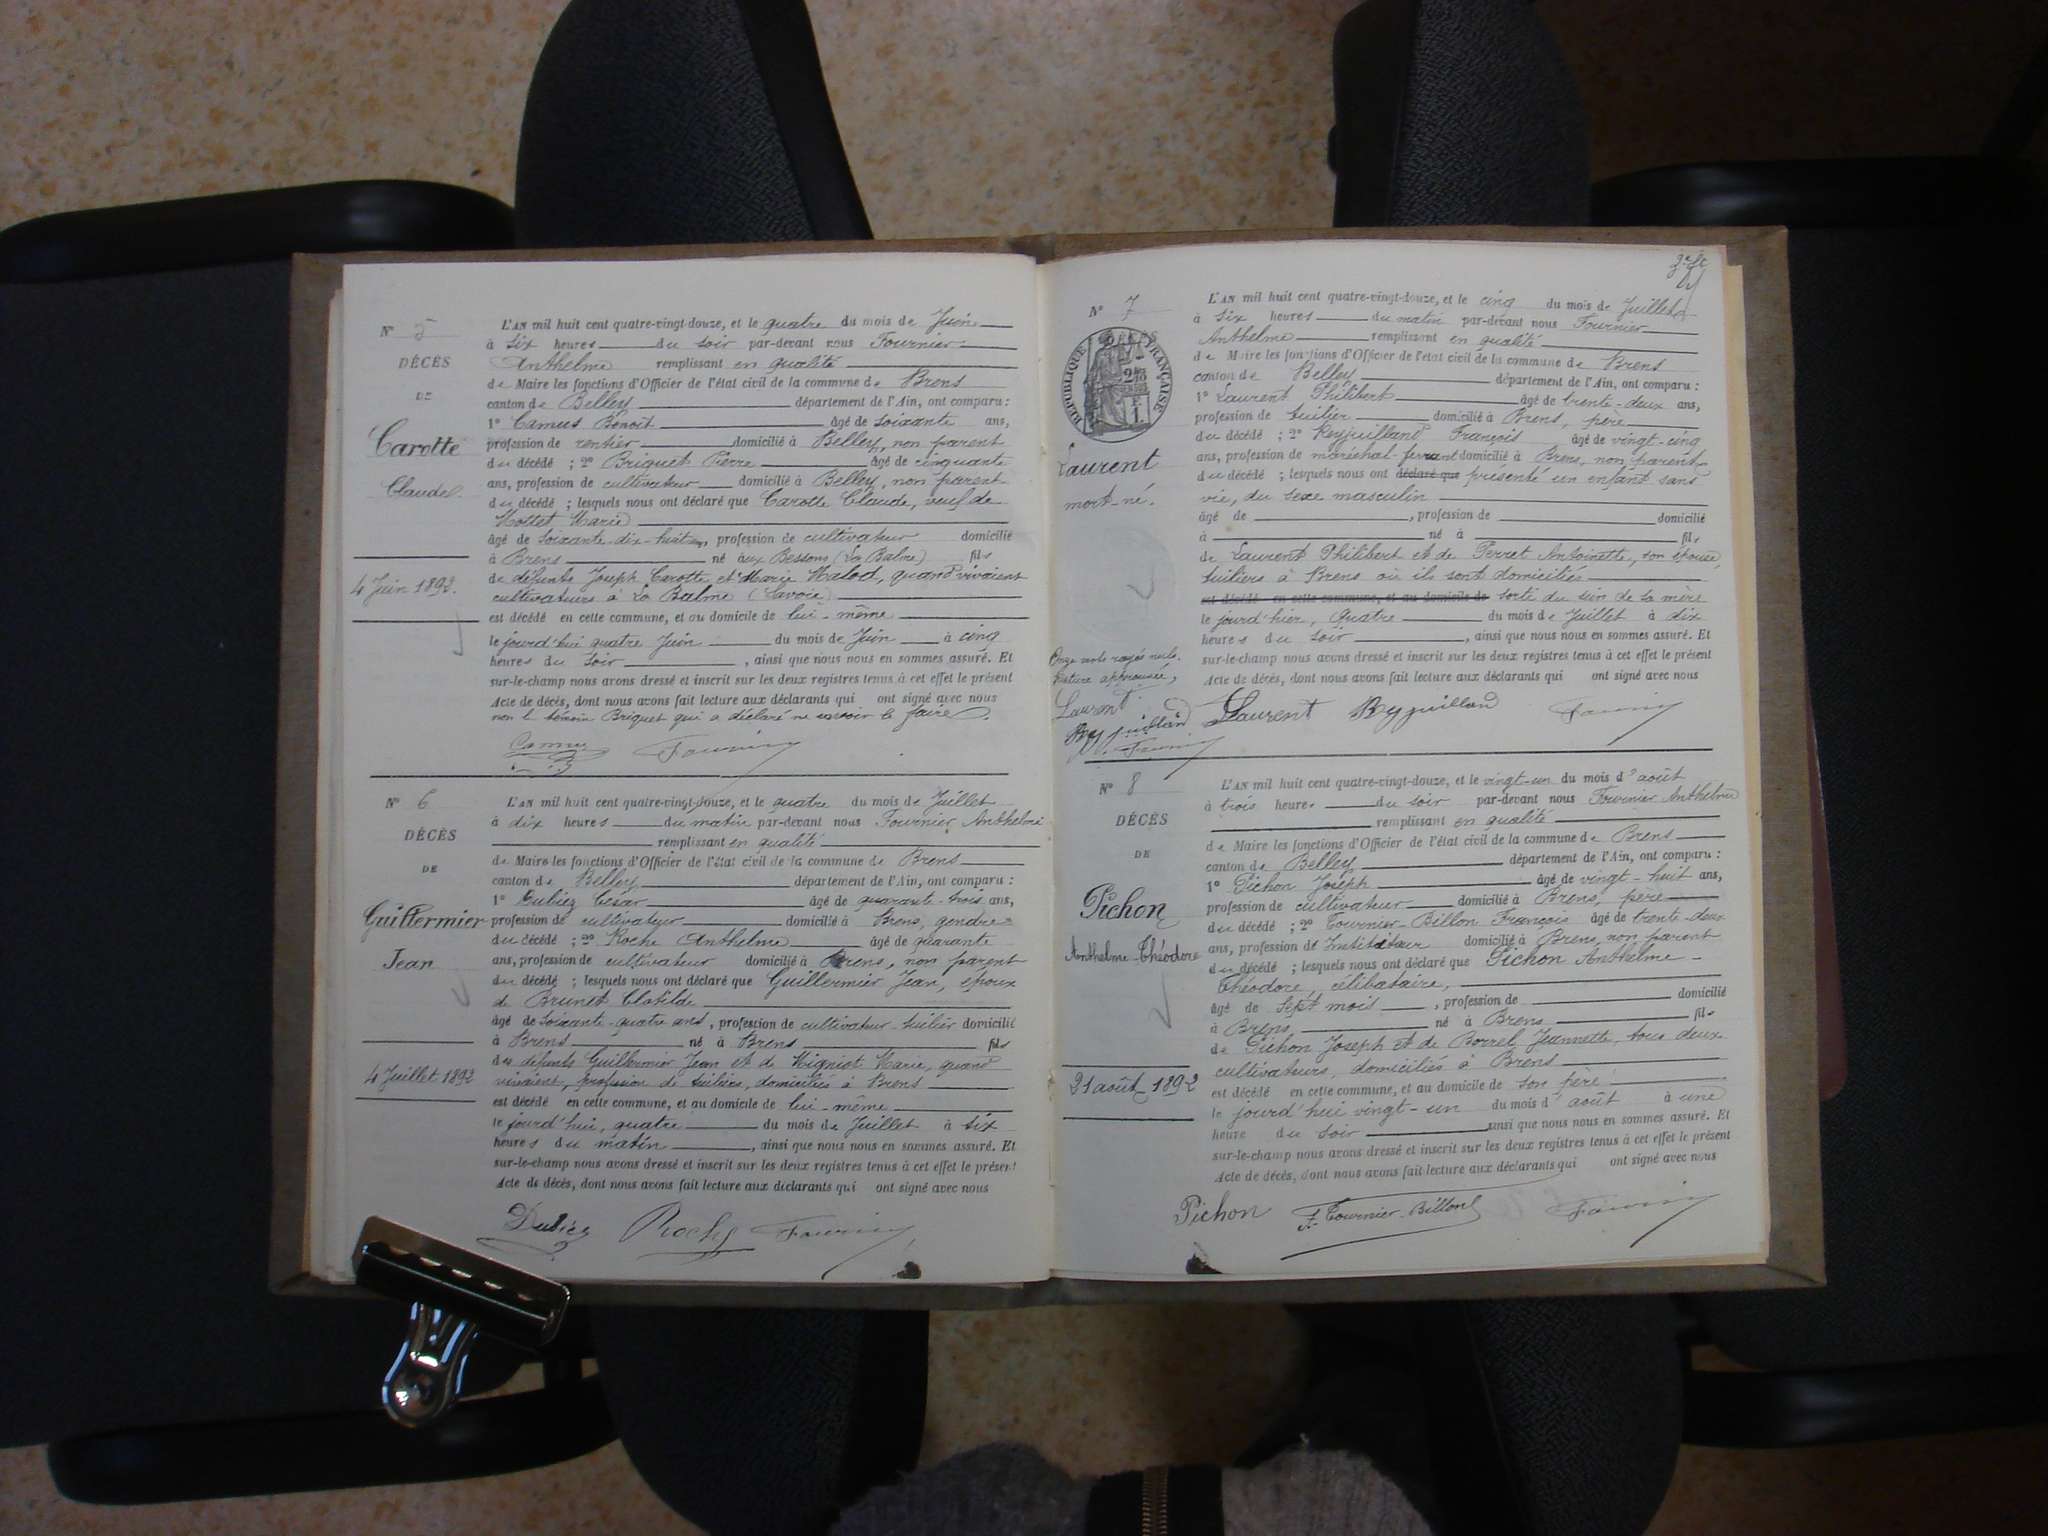 N° 5
DÉCÈS
DE
Carotte
Claude
4 Juin 1892.
L'AN mil huit cent quatre-vingt-douze, et le quatre du mois de Juin
à six heures du soir par-devant nous Fournier
Anthelme remplissant en qualité
de Maire les fonctions d'Officier de l'état civil de la commune de Brens
canton de Belley département de l'Ain, ont comparu :
1° Camus Benoit âgé de soixante ans,
profession de rentier domicilié à Belley, non parent
du décédé ; 2° Briquet Pierre âgé de cinquante
ans, profession de cultivateur domicilié à Belley, non parent
du décédé ; lesquels nous ont déclaré que Carotte Claude, veuf de
Mottet Marie
âgé de soixante-dix-huit, profession de cultivateur domicilié
à Brens né aux Bessons (La Balme) fils
de défunts Joseph Carotte et Marie Malod, quand vivaient
cultivateurs à La Balme (Savoie)
est décédé en cette commune, et au domicile de lui-même
le jourd'hui quatre Juin du mois de Juin à cinq
heures du soir , ainsi que nous nous en sommes assuré. Et
sur-le-champ nous avons dressé et inscrit sur les deux registres tenus à cet effet le présent
Acte de décès, dont nous avons fait lecture aux déclarants qui ont signé avec nous
non l témoin Briquet qui a déclaré ne savoir le faire.
Camus Fournier
N° 6
DÉCÈS
DE
Guillermier
Jean
4 Juillet 1892
L'AN mil huit cent quatre-vingt-douze, et le quatre du mois de Juillet
à dix heures du matin par-devant nous Fournier Anthelme
remplissant en qualité
de Maire les fonctions d'Officier de l'état civil de la commune de Brens
canton de Belley département de l'Ain, ont comparu :
1° Dubiez César âgé de quarante-trois ans,
profession de cultivateur domicilié à Brens, gendre
du décédé ; 2° Roche Anthelme âgé de quarante
ans, profession de cultivateur domicilié à Brens, non parent
du décédé ; lesquels nous ont déclaré que Guillermier Jean, époux
de Brunet Clotilde
âgé de soixante-quatre ans, profession de cultivateur-tuilier domicilié
à Brens né à Brens fils
des défunts Guillermier Jean et de Mignot Marie, quand
vivaient, profession de tuiliers, domiciliés à Brens
est décédé en cette commune, et au domicile de lui-même
le jourd'hui, quatre du mois de Juillet à six
heures du matin , ainsi que nous nous en sommes assuré. Et
sur-le-champ nous avons dressé et inscrit sur les deux registres tenus à cet effet le présent
Acte de décès, dont nous avons fait lecture aux déclarants qui ont signé avec nous
Dubiez Roche Fournier
N° 7
RÉPUBLIQUE FRANÇAISE
Laurent
mort-né.
Onze mots rayés nuls.
approuvée,
Laurent
Reyjuilland
Fournier
L'AN mil huit cent quatre-vingt-douze, et le cinq du mois de Juillet
à six heures du matin par-devant nous Fournier
Anthelme remplissant en qualité
de Maire les fonctions d'Officier de l'état civil de la commune de Brens
canton de Belley département de l'Ain, ont comparu :
1° Laurent Philibert âgé de trente-deux ans,
profession de tuilier domicilié à Brens, père
du décédé ; 2° Reyjuilland François âgé de vingt-cinq
ans, profession de maréchal-ferrant domicilié à Brens, non parent
du décédé ; lesquels nous ont déclaré que présenté un enfant sans
vie, du sexe masculin
âgé de , profession de domicilié
à né à fils
de Laurent Philibert et de Perret Antoinette, son épouse,
tuiliers à Brens où ils sont domiciliés
est décédé en cette commune, et au domicile de sorti du sein de la mère
le jourd'hier, quatre du mois de Juillet à dix
heures du soir , ainsi que nous nous en sommes assuré. Et
sur-le-champ nous avons dressé et inscrit sur les deux registres tenus à cet effet le présent
Acte de décès, dont nous avons fait lecture aux déclarants qui ont signé avec nous
Laurent Reyjuilland Fournier
N° 8
DÉCÈS
DE
Pichon
Anthelme-Théodore
21 août 1892
L'AN mil huit cent quatre-vingt-douze, et le vingt-un du mois d'août
à trois heures du soir par-devant nous Fournier Anthelme
remplissant en qualité
de Maire les fonctions d'Officier de l'état civil de la commune de Brens
canton de Belley département de l'Ain, ont comparu :
1° Pichon Joseph âgé de vingt-huit ans,
profession de cultivateur domicilié à Brens, père
du décédé ; 2° Tournier-Billon François âgé de trente-deux
ans, profession de Instituteur domicilié à Brens, non parent
du décédé ; lesquels nous ont déclaré que Pichon Anthelme-
Théodore, célibataire,
âgé de sept mois , profession de domicilié
à Brens, né à Brens fils
de Pichon Joseph et de Borret Jeannette, tous deux
cultivateurs, domiciliés à Brens
est décédé en cette commune, et au domicile de son père
le jourd'hui vingt-un du mois d'août à une
heure du soir ainsi que nous nous en sommes assuré. Et
sur-le-champ nous avons dressé et inscrit sur les deux registres tenus à cet effet le présent
Acte de décès, dont nous avons fait lecture aux déclarants qui ont signé avec nous
Pichon F. Tournier-Billon Fournier